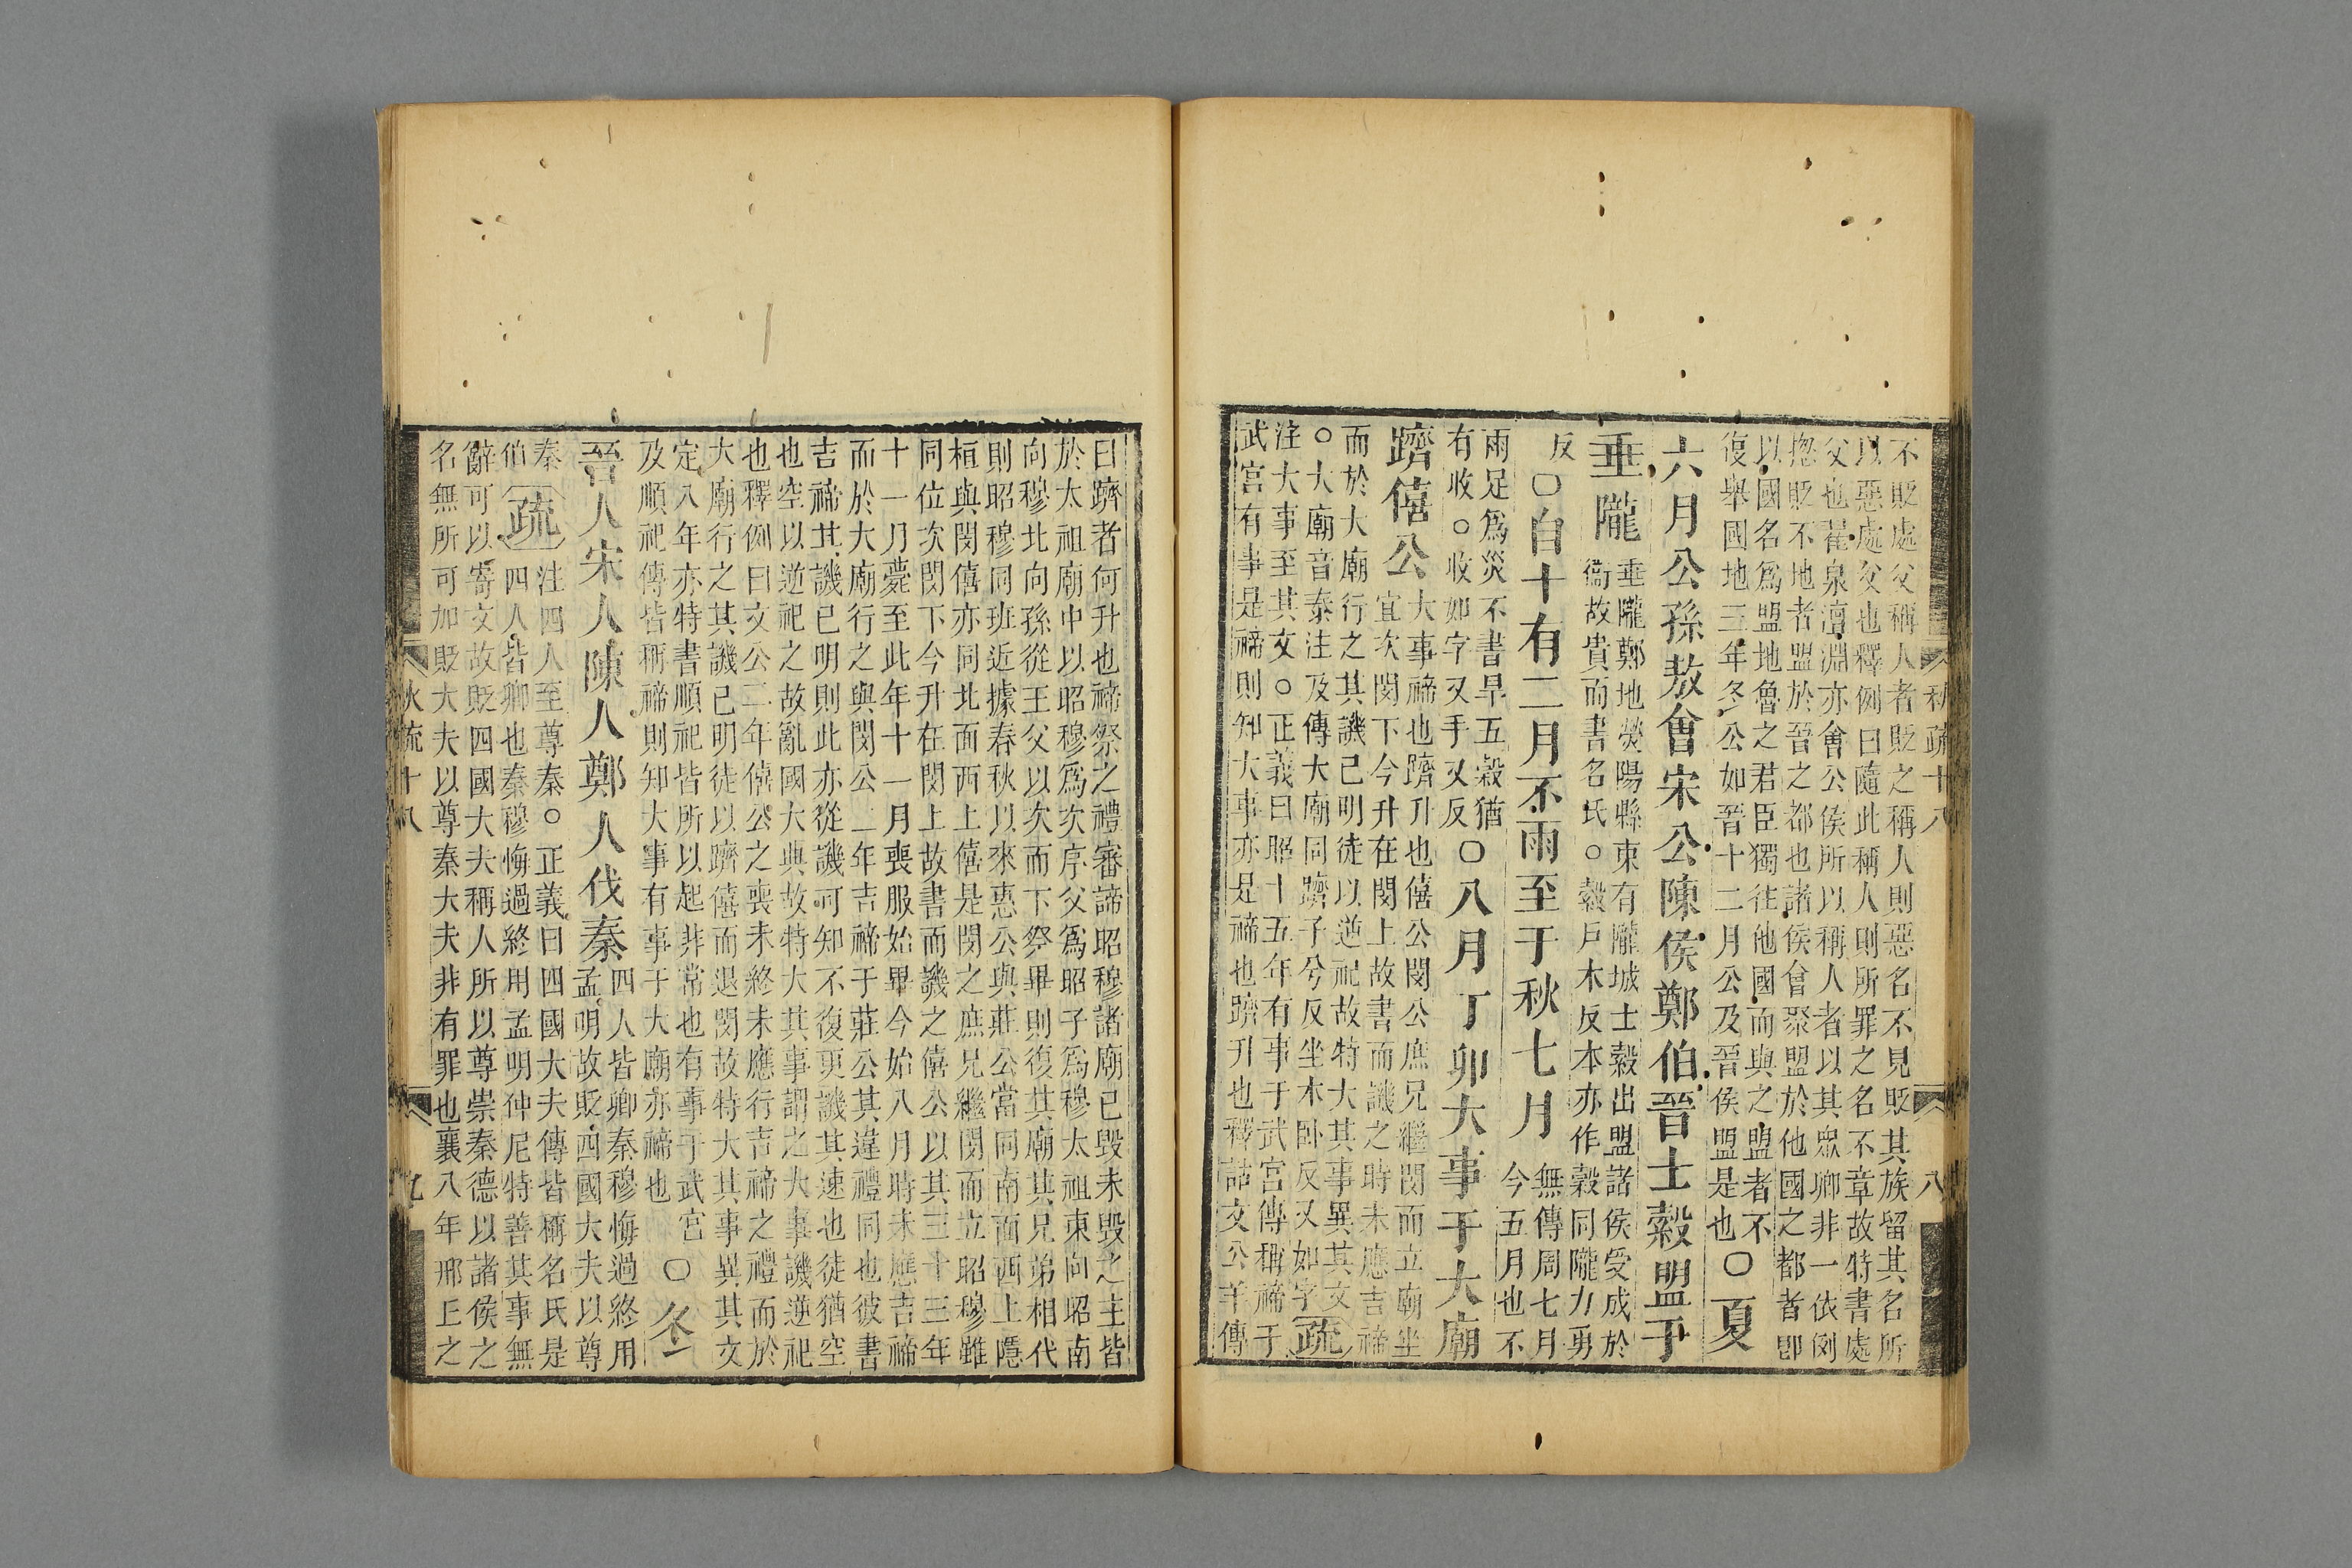 秋疏十八
八
不貶處父稱人者貶之稱人則惡名不見貶其族留其名所
以惡處父也釋例曰隨此稱人則所罪之名不章故特書處
父也翟泉澶淵亦會公侯所以稱人者以其眾卿非一依例
揔貶不地者盟於晉之都也諸侯會聚盟於他國之都者即
以國名爲盟地魯之君臣獨往他國而與之盟者不
復舉國地三年冬公如晉十二月公及晉侯盟是也
○夏
六月公孫敖會宋公陳侯鄭伯晉士縠盟于
垂隴
垂隴鄭地熒陽縣東有隴城士縠出盟諸侯受成於
衞故貴而書名氏○縠戸木反本亦作穀同隴力勇
反
○自十有二月不雨至于秋七月
無傳周七月
今五月也不
雨足爲災不書旱五穀猶
有收○收如字又手又反
○八月丁卯大事于大廟
躋僖公
大事禘也躋升也僖公閔公庶兄繼閔而立廟坐
宜次閔下今升在閔上故書而譏之時未應吉禘
而於大廟行之其譏已明徒以逆祀故特大其事異其文
○大廟音泰注及傳大廟同躋子兮反坐才卧反又如字
疏
注大事至其文○正義曰昭十五年有事于武宮傳稱禘于
武宮有事是禘則知大事亦是禘也躋升也釋詁文公羊傳
曰躋者何升也禘祭之禮審諦昭穆諸廟已毀未毀之主皆
於太祖廟中以昭穆爲次序父爲昭子爲穆太祖東向昭南
向穆北向孫從王父以次而下祭畢則復其廟其兄弟相代
則昭穆同班近據春秋以來惠公與莊公當同南面西上隱
桓與閔僖亦同北面西上僖是閔之庶兄繼閔而立昭穆雖
同位次閔下今升在閔上故書而譏之僖公以其三十三年
十一月薨至此年十一月喪服始畢今始八月時未應吉禘
而於大廟行之與閔公二年吉禘于莊公其違禮同也彼書
吉禘其譏已明則此亦從譏可知不復更譏其速也徒猶空
也空以逆祀之故亂國大典故特大其事謂之大事譏逆祀
也釋例曰文公二年僖公之喪未終未應行吉禘之禮而於
大廟行之其譏已明徒以躋僖而退閔故特大其事異其文
定八年亦特書順祀皆所以起非常也有事于武宮
及順祀傳皆稱禘則知大事有事于大廟亦禘也
○冬
晉人宋人陳人鄭人伐秦
四人皆卿秦穆悔過終用
孟明故貶四國大夫以尊
秦
疏
注四人至尊秦○正義曰四國大夫傳皆稱名氏是
伯
四人皆卿也秦穆悔過終用孟明仲尼特善其事無
辭可以寄文故貶四國大夫稱人所以尊崇秦德以諸侯之
名無所可加貶大夫以尊秦大夫非有罪也襄八年邢丘之
火疏十八
九